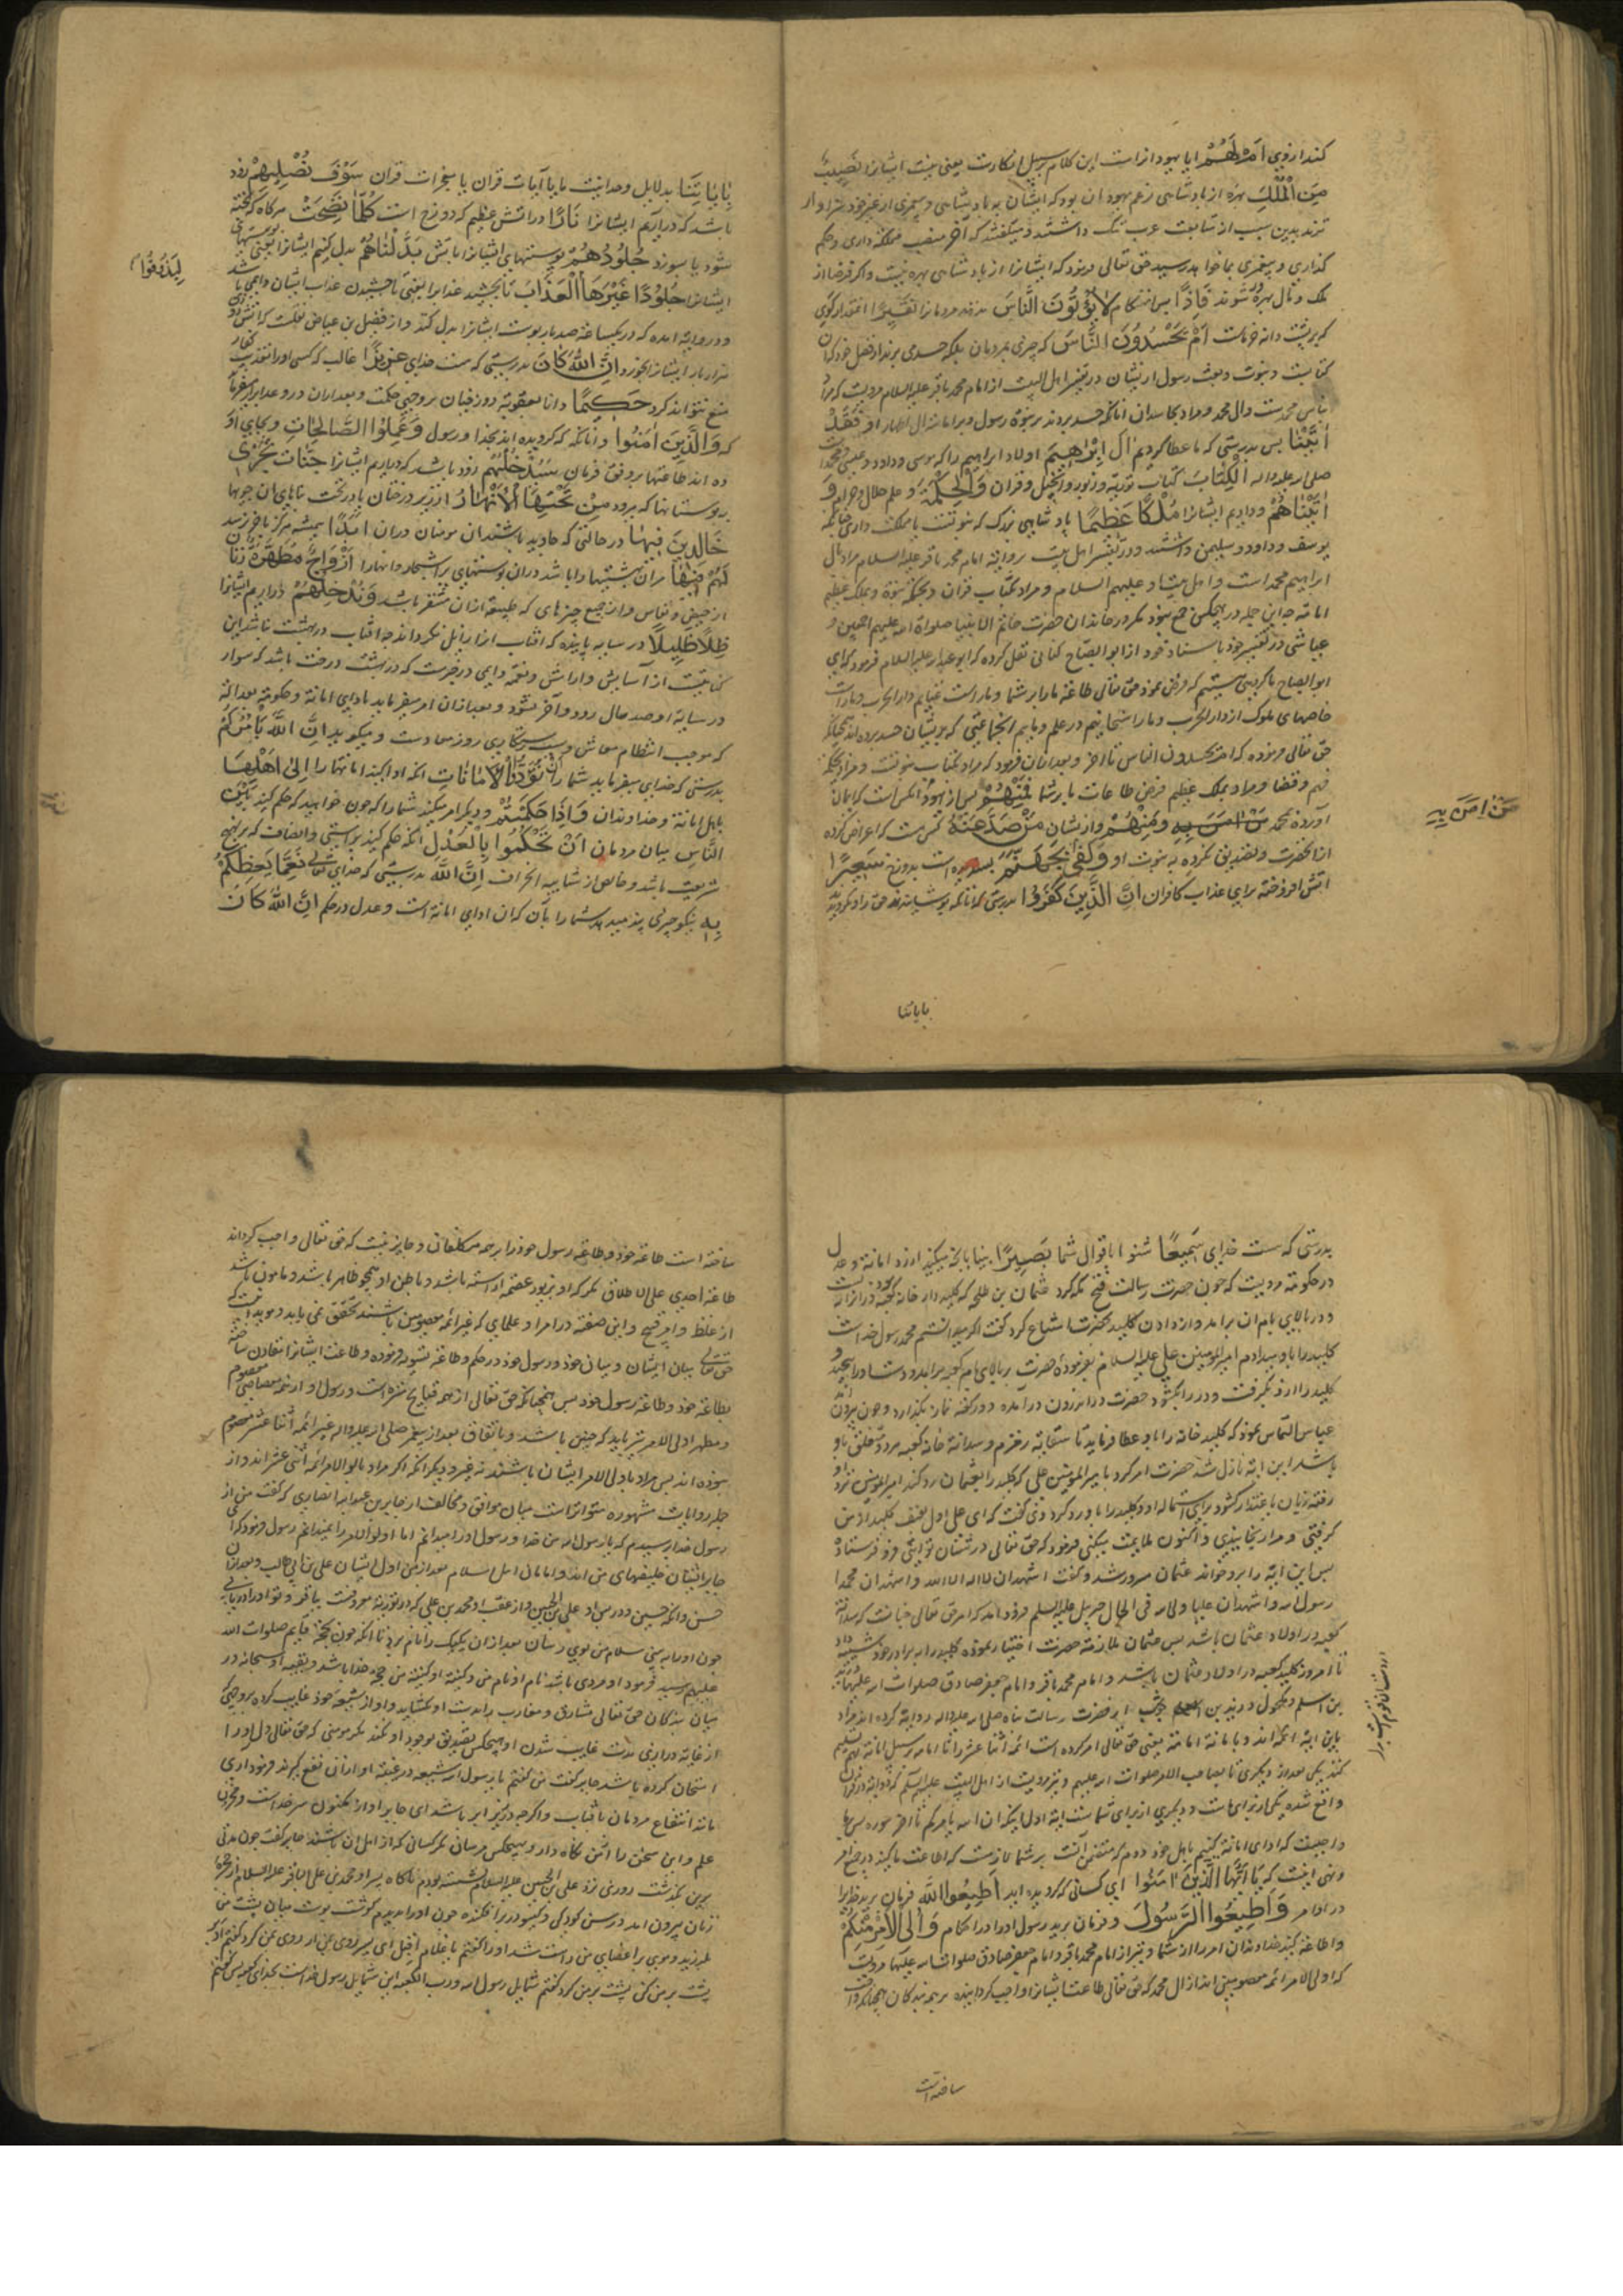 کند از روی اَمْ لَهُمْ ایا یهود انراست این کلام بر سبیل انکارست یعنی نیست ایشانرا نَصِیبٌ
مِنَ الْمُلْكِ بهره از پادشاهی زعم یهود ان بود که ایشان به پادشاهی و پیغمبری از غیر خود سزاوار
ترند بدین سبب از متابعت عرب ننگ داشتند و میگفتند که آخر منصب مملکة داری و حکم
گذاری و پیغمبری بما خواهد رسید حق تعالی فرمود که ایشانرا از پادشاهی بهره نیست و اگر فرضا از
ملک و مال بهره شوند فَاِذًا پس انهنکام لَا یُؤْتُونَ النَّاسَ ندهند مردمانرا نَقِیرًا انمقدار کوی
که بر پشت دانه خرماست اَمْ یَحْسُدُونَ النَّاسَ که چیزی بمردمان بلکه حسد می برند از فضل خود که ان
کتابست و نبوت و بعث رسول از یشان در تفسیر اهل البیت از امام محمد باقر علیه السلام مرویست که مراد
بناس محمدست وال محمد و مراد بحاسدان انانکه حسد بردند بر نبوة رسول و بر امامة ال اطهار او فَقَدْ
اٰتَیْنَا پس بدرستی که ما عطا کردیم اٰلَ اِبْرٰهِیمَ اولاد ابراهیم را که موسی و داود و عیسی و محمد است
صلی الله علیه واله الْكِتَابَ کتاب توریة و زبور و انجیل و قران وَالْحِكْمَةَ و علم حلال و حرام وَ
اٰتَیْنَاهُمْ و دادیم ایشانرا مُلْكًا عَظِیمًا پادشاهی بزرک که نبوتست یا مملکت داری چنانکه
یوسف و داود و سلیمن داشتند و در تفسیر اهل بیت بروایة امام محمد باقر علیه السلام مراد بال
ابراهیم محمد است و اهل بیت او علیهم السلام و مراد بکتاب قران و بحکمة نبوة و بملک عظیم
امامة چه این جمله در هیچکس جمع نبود مکر در خاندان حضرت خاتم الانبیا صلواة الله علیهم اجمعین و
عیاشی در تفسیر خود باسناد خود از ابو الصباح کنانی نقل کرده که ابو عبدالله علیه السلام فرمود که ای
ابو الصباح ما گروهی هستیم که فرض نمود حق تعالی طاعة ما را بر شما و ماراست غنایم دار الحرب و ماراست
خاصهای ملوک از دار الحرب و ما راسخانیم در علم و ماییم انجماعتی که بریشان حسد برده اند چنانکه
حق تعالی فرموده که ام یحسدون الناس تا اخر و بعد ازان فرمود که مراد بکتاب نبوتست و مراد بحکمة
فهم و قضا و مراد بملک عظیم فرض طاعات ما بر شما فَمِنْهُمْ پس از یهود انکس است که ایمان
آورده بمحمد مَنْ اٰمَنَ بِهِ وَمِنْهُمْ و از یشان مَنْ صَدَّ عَنْهُ کس است که اعراض کرده
از انحضرت و تصدیق نکرده به نبوت او وَكَفٰی بِجَهَنَّمَ بسنده است بدوزخ سَعِیرًا
اتش افروخته برای عذاب کافران اِنَّ الَّذِینَ كَفَرُوا بدرستی که انانکه پوشیدند حق را و نکرویدند
مَنْ اٰمَنَ بِهِ
بایاتنا
بِاٰیَاتِنَا بدلایل وحدانیت ما یا آیات قران یا معجزات قران سَوْفَ نُصْلِیهِمْ زود
باشد که دراریم ایشانرا نَارًا در اتش عظیم که دوزخ است كُلَّمَا نَضِجَتْ هرکاه که پخته
شود یا بسوزد جُلُودُهُمْ پوستهای ایشانرا باتش بَدَّلْنَاهُمْ بدل کنیم ایشانرا یعنی پوستهای
ایشانرا جُلُودًا غَیْرَهَا الْعَذَابَ تا بچشند عذابرا یعنی تا چشیدن عذاب ایشان دایمی باشد
لِیَذُوقُوا
و در روایة امده که در یکساعة صد بار پوست ایشانرا بدل کنند و از فضیل بن عیاض نقلست که اتش روزی
هزار بار ایشانرا بخورد اِنَّ اللّٰهَ كَانَ بدرستی که هست خدای عَزِیزًا غالب که کسی اورا از تعذیب کفار
منع نتواند کرد حَكِیمًا دانا بعقوبة دوزخیان بر وجه حکمت و بعد ازان در وعد ابرار میفرماید
که وَالَّذِینَ اٰمَنُوا و انانکه که کرویده اند بخدا و رسول وَعَمِلُوا الصَّالِحَاتِ و بجای آور
ده اند طاعتها بر وفق فرمان سَنُدْخِلُهُمْ زود باشد که دراریم ایشانرا جَنَّاتٍ تَجْرِی
در بوستانها که میرود مِنْ تَحْتِهَا الْاَنْهَارُ از زیر درختان یا درخت بناهای ان جویها
خَالِدِینَ فِیهَا در حالتی که جاوید باشند ان مومنان دران اَبَدًا همیشه هرکز باخر نرسد
لَهُمْ فِیهَا مران بهشتیها را باشد دران بوستنهای پر اشجار و انهار اَزْوَاجٌ مُطَهَّرَةٌ زنان
از حیض و نفاس و از جمیع چیزهای که طبیعة ازان متنفر باشد وَنُدْخِلُهُمْ و دراریم ایشانرا
ظِلًّا ظَلِیلًا در سایه پاینده که افتاب انرا زایل نکرداند چه افتاب در بهشت نباشد این
کنایتست از آسایش و ارامش و نعمة دایمی در خبرست که در بهشت درخت باشد که سوار
در سایة او صد سال رود و آخر نشود و بعد ازان امر میفرماید بادای امانة و حکومة بعدالة
که موجب انتظام معاش و سبب رستکاری روز معادست و میکوید اِنَّ اللّٰهَ یَاْمُرُكُمْ
بدرستی که خدای میفرماید شما را اَنْ تُؤَدُّوا الْاَمَانَاتِ انکه ادا کنید امانتها را اِلٰی اَهْلِهَا
باهل امانة و خداوندان وَاِذَا حَكَمْتُمْ و دیکر امر میکند شما را که چون خواهید که حکم کنید بَیْنَ
النَّاسِ میان مردمان اَنْ تَحْكُمُوا بِالْعَدْلِ انکه حکم کنید براستی و انصاف که بر نهج
شریعت باشد و خالص از شایبه انحراف اِنَّ اللّٰهَ بدرستی که خدای تعالی نِعِمَّا یَعِظُكُمْ
بِهِ نیکو چیزی پند میدهد شما را بآن که ان ادای امانة است و عدل در حکم اِنَّ اللّٰهَ كَانَ
بدرستی که هست خدای سَمِیعًا شنوا باقوال شما بَصِیرًا بینا بانچه میکنید از رد امانة و عدل
در حکومة مرویست که چون حضرت رسالت فتح مکه کرد عثمان بن طلحه که کلیددار خانه کعبه بود در انرا بست
و در بالای بام ان برامد و از دادن کلید بحضرت امتناع کرد کفت اکر میدانستم محمد رسول خداست
کلید را باو میدادم امیرالمومنین علی علیه السلام بفرمودة حضرت بر بالای بام کعبه برامد و دست او را پیچید و
کلید را از و بکرفت و در را بکشود حضرت در اندرون درآمده دو رکعة نماز بکذارد و چون بیرون آمد
عباس التماس نمود که کلید خانه را باو عطا فرماید تا سقایة زمزم و سدانة خانه کعبه هر دو متعلق باو
باشد این ایة نازل شد حضرت امر کرد بامیرالمومنین علی که کلید را بعثمان رد کند امیرالمومنین نزد او
رفته زبان باعتذار کشود برای استمالة او و کلید را باو رد کرد وی کفت که ای علی اول بعنف کلید از من
کرفتی و مرا رنجانیدی و اکنون بملایمت میکنی فرمود که حق تعالی در شان تو ایتی فرو فرستاد
پس این ایة را برو خواند عثمان مسرور شد و کفت اشهد ان لا اله الا الله و اشهد ان محمدا
رسول الله و اشهد ان علیا ولی الله فی الحال جبرییل علیه السلم فرود امد که امر حق تعالی چنانست که سدانة
کعبه در اولاد عثمان باشد پس عثمان ملازمة حضرت اختیار نموده کلید را به برادر خود شیبه داد
تا امروز کلید کعبه در اولاد عثمان باشد و امام محمد باقر و امام جعفر صادق صلوات الله علیهما
بن اسلم و مکحول و زید بن حوشب از حضرت رسالت پناه صلی الله علیه واله روایة کرده اند مراد
باین ایة ائمه اند و بامانة امامة یعنی حق تعالی امر کرده است ائمه اثنا عشر را تا امامة بر سبیل امانة بهم تسلیم
کنند یکی بعد از دیکری تا بصاحب الامر صلوات الله علیهم و نیز مرویست از اهل البیت علیهم السلم که دو ایة در قران
واقع شده یکی از برای ماست و دیکری از برای شماست ایة اول اینکه ان الله یامرکم تا اخر سوره پس بر ما
واجبست که ادای امانة کنیم باهل خود دوم که متضمن آنست بر شما لازمست که اطاعت ما کنید در جمیع اوامر
ونهی اینست که یَا اَیُّهَا الَّذِینَ اٰمَنُوا ای کسانی که کرویده اید اَطِیعُوا اللّٰهَ فرمان برید خدایرا
در اوامر وَاَطِیعُوا الرَّسُولَ و فرمان برید رسول او را در احکام وَاُولِی الْاَمْرِ مِنْكُمْ
و اطاعة کنید خداوندان امر را از شما و نیز از امام محمد باقر و امام جعفر صادق صلوات الله علیهما مرویست
که اولی الامر ائمه معصومین اند از ال محمد که حق تعالی طاعت ایشانرا واجب کردانیده بر همه بندکان همچنانکه واجب
ساخته است
ساخته است طاعة خود و طاعة رسول خود را بر همه مکلفان و جایز نیست که حق تعالی واجب کرداند
طاعة احدی علی الاطلاق مکر که او بزیور عصمة آراسته باشد و باطن او همچو ظاهر باشد و مامون باشد
از غلط و امر قبیح و این صفة در امرا و علمای که غیر ائمه معصومین باشند تحقق نمی یابد و موید اینست که
حق تعالی میان ایشان و میان خود و رسول خود در حکم و طاعة تسویه فرموده و طاعت ایشانرا مقارن ساخته
بطاعة خود و طاعة رسول خود پس همچنانکه حق تعالی از همه قبایح منزه است و رسول او از همه معاصی معصوم
و مطهر اولی الامر نیز باید که چنین باشد و باتفاق بعد از پیغمبر صلی الله علیه واله غیر ائمه اثنا عشر معصوم
نبوده اند پس مراد باولی الامر ایشان باشند نه غیر و دیکر انکه اکر مراد باولو الامر ائمه اثنی عشر اند و از
جمله روایات مشهوره متواترات میان موافق و مخالف از جابر بن عبدالله انصاری که کفت من از
رسول خدا پرسیدم که یا رسول الله من خدا و رسول او را میدانم اما اولو الامر را نمیدانم رسول فرمود که ای
جابر ایشان خلیفهای من اند و امامان اهل اسلام بعد از من اول ایشان علی بن ابی طالب و بعد ازان
حسن وانکه حسین و در پس او علی بن الحسین و از عقب او محمد بن علی که در توریة معروفست بباقر و تو او را دریابی
چون او را به بینی سلام من بوی رسان بعد ازان یکیک را نام برد تا انکه چون بحجة قایم صلوات الله
علیهم رسید فرمود او مردی باشد نام او نام من و کنیة او کنیة من حجة خدا باشد و بقیة او سبحانه در
میان بندکان حق تعالی مشارق و مغارب را بدست او بکشاید و او از شیعة خود غایب کرده بر وجهی
از غایة درازی مدت غایب شدن او هیچکس تصدیق بوجود او نکند مکر مومنی که حق تعالی دل او را
امتحان کرده باشد جابر کفت من کفتم یا رسول الله شیعه در غیبة او ازان نفع کیرند فرمود اری
مانند انتفاع مردمان بافتاب و اکرچه در زیر ابر باشد ای جابر او از مکنون سر خداست و مخزون
علم و این سخن را از من نکاه دار و بهیچکس مرسان مکر کسانی که از اهل ان باشند جابر کفت چون مدتی
برین بکذشت روزی نزد علی بن الحسین علیه السلام نشسته بودم ناکاه پسر او محمد بن علی الباقر علیه السلام از حجرة
زنان بیرون امد در سن کودکی و کیسو در بر افکنده چون او را بدیدم کوشت پوست میان پشت من
بلرزید و موی بر اعضای من راست شد او را کفتم یا غلام اقبل ای پسر روی بمن ار روی بمن کرد کفتم ادبر
پشت بر من کن پشت بر من کرد کفتم شمایل رسول الله و رب الکعبة این شمایل رسول خداست بخدای کعبه پس کفتم